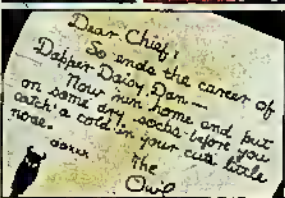 Dear Chief!
So ends the career of
Dapper Daisy Dan—
Now run home and put
on some dry socks before you
catch a cold in your cute little
nose.
The
Owl